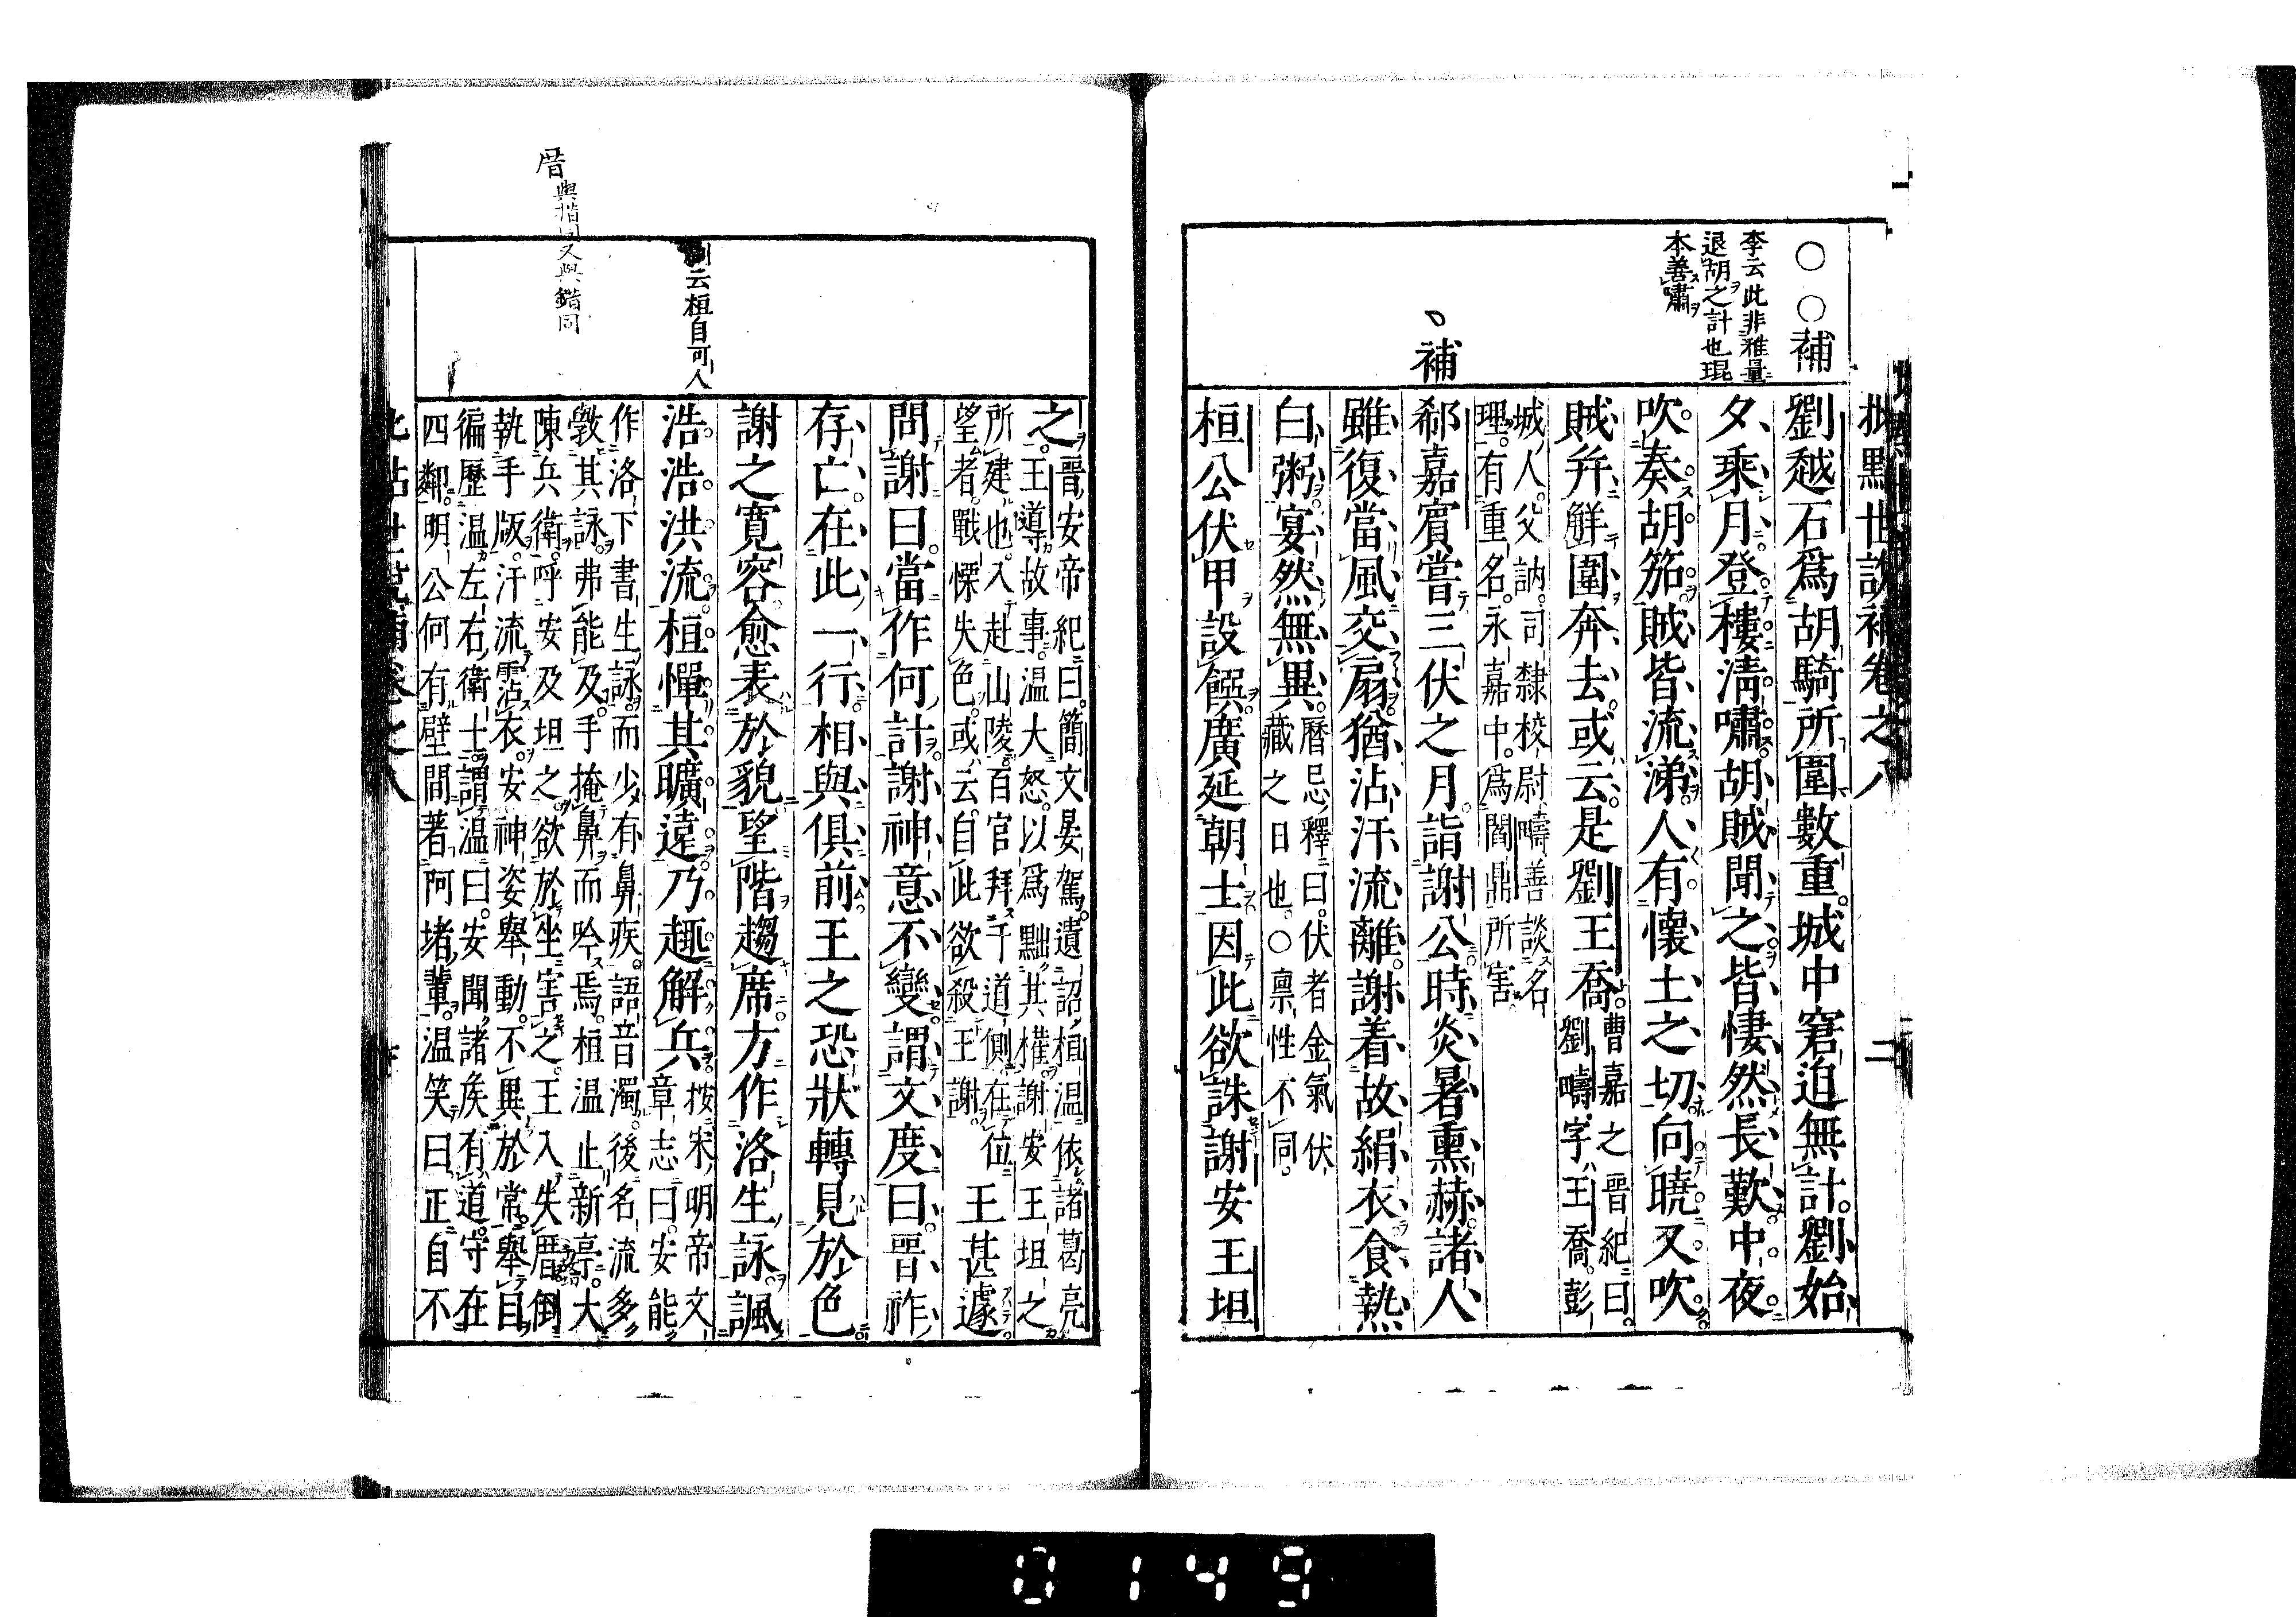 批點世說補卷之八 二
○○補
李云此非雅量
退胡之計也琨
本善嘯
劉越石爲胡騎所圍數重。城中窘迫無計。劉始
夕乘月登樓淸嘯。胡賊聞之。皆悽然長歎。中夜
吹奏胡笳。賊皆流涕。人有懷土之切。向曉又吹。
賊幷觧圍奔去。或云。是劉王喬。
曹嘉之晉紀曰。
劉疇字王喬。彭
城人。父訥。司隸校尉。疇善談名
理。有重名。永嘉中。爲閻鼎所害。
補
郗嘉賓嘗三伏之月。詣謝公。時炎暑熏赫。諸人
雖復當風交扇。猶沾汗流離。謝着故絹衣食熱
白粥。宴然無異。
曆忌釋曰。伏者金氣伏
藏之日也。○禀性不同。
桓公伏甲設饌。廣延朝士。因此欲誅謝安王坦
之。
晋安帝紀曰。簡文晏駕。遺詔桓温依諸葛亮
王導故事。温大怒。以爲黜其權。謝安王坦之
所建也。入赴山陵。百官拜于道側。在位
望者。戰慄失色。或云。自此欲殺王謝。
王甚遽
問謝曰。當作何計。謝神意不變。謂文度曰。晋祚
存亡。在此一行。相與俱前。王之恐狀轉見於色
謝之寛容愈表於貌。望階趨席。方作洛生詠。諷
浩浩洪流。桓憚其曠遠。乃趣解兵。
按宋明帝文
章志曰。安能
作洛下書生詠。而少有鼻疾。語音濁。後名流多
斅其詠。弗能及。手掩鼻而吟焉。桓温止新亭。大
陳兵衛。呼安及坦之。欲於坐害之。王入失厝倒
執手版。汗流霑衣。安神姿舉動。不異於常。舉目
徧歷温左右衛士。謂温曰。安聞諸侯有道。守在
四鄰。明公何有壁間著阿堵輩。温笑曰。正自不
劉云桓自可人
厝與措同又與錯同
0149